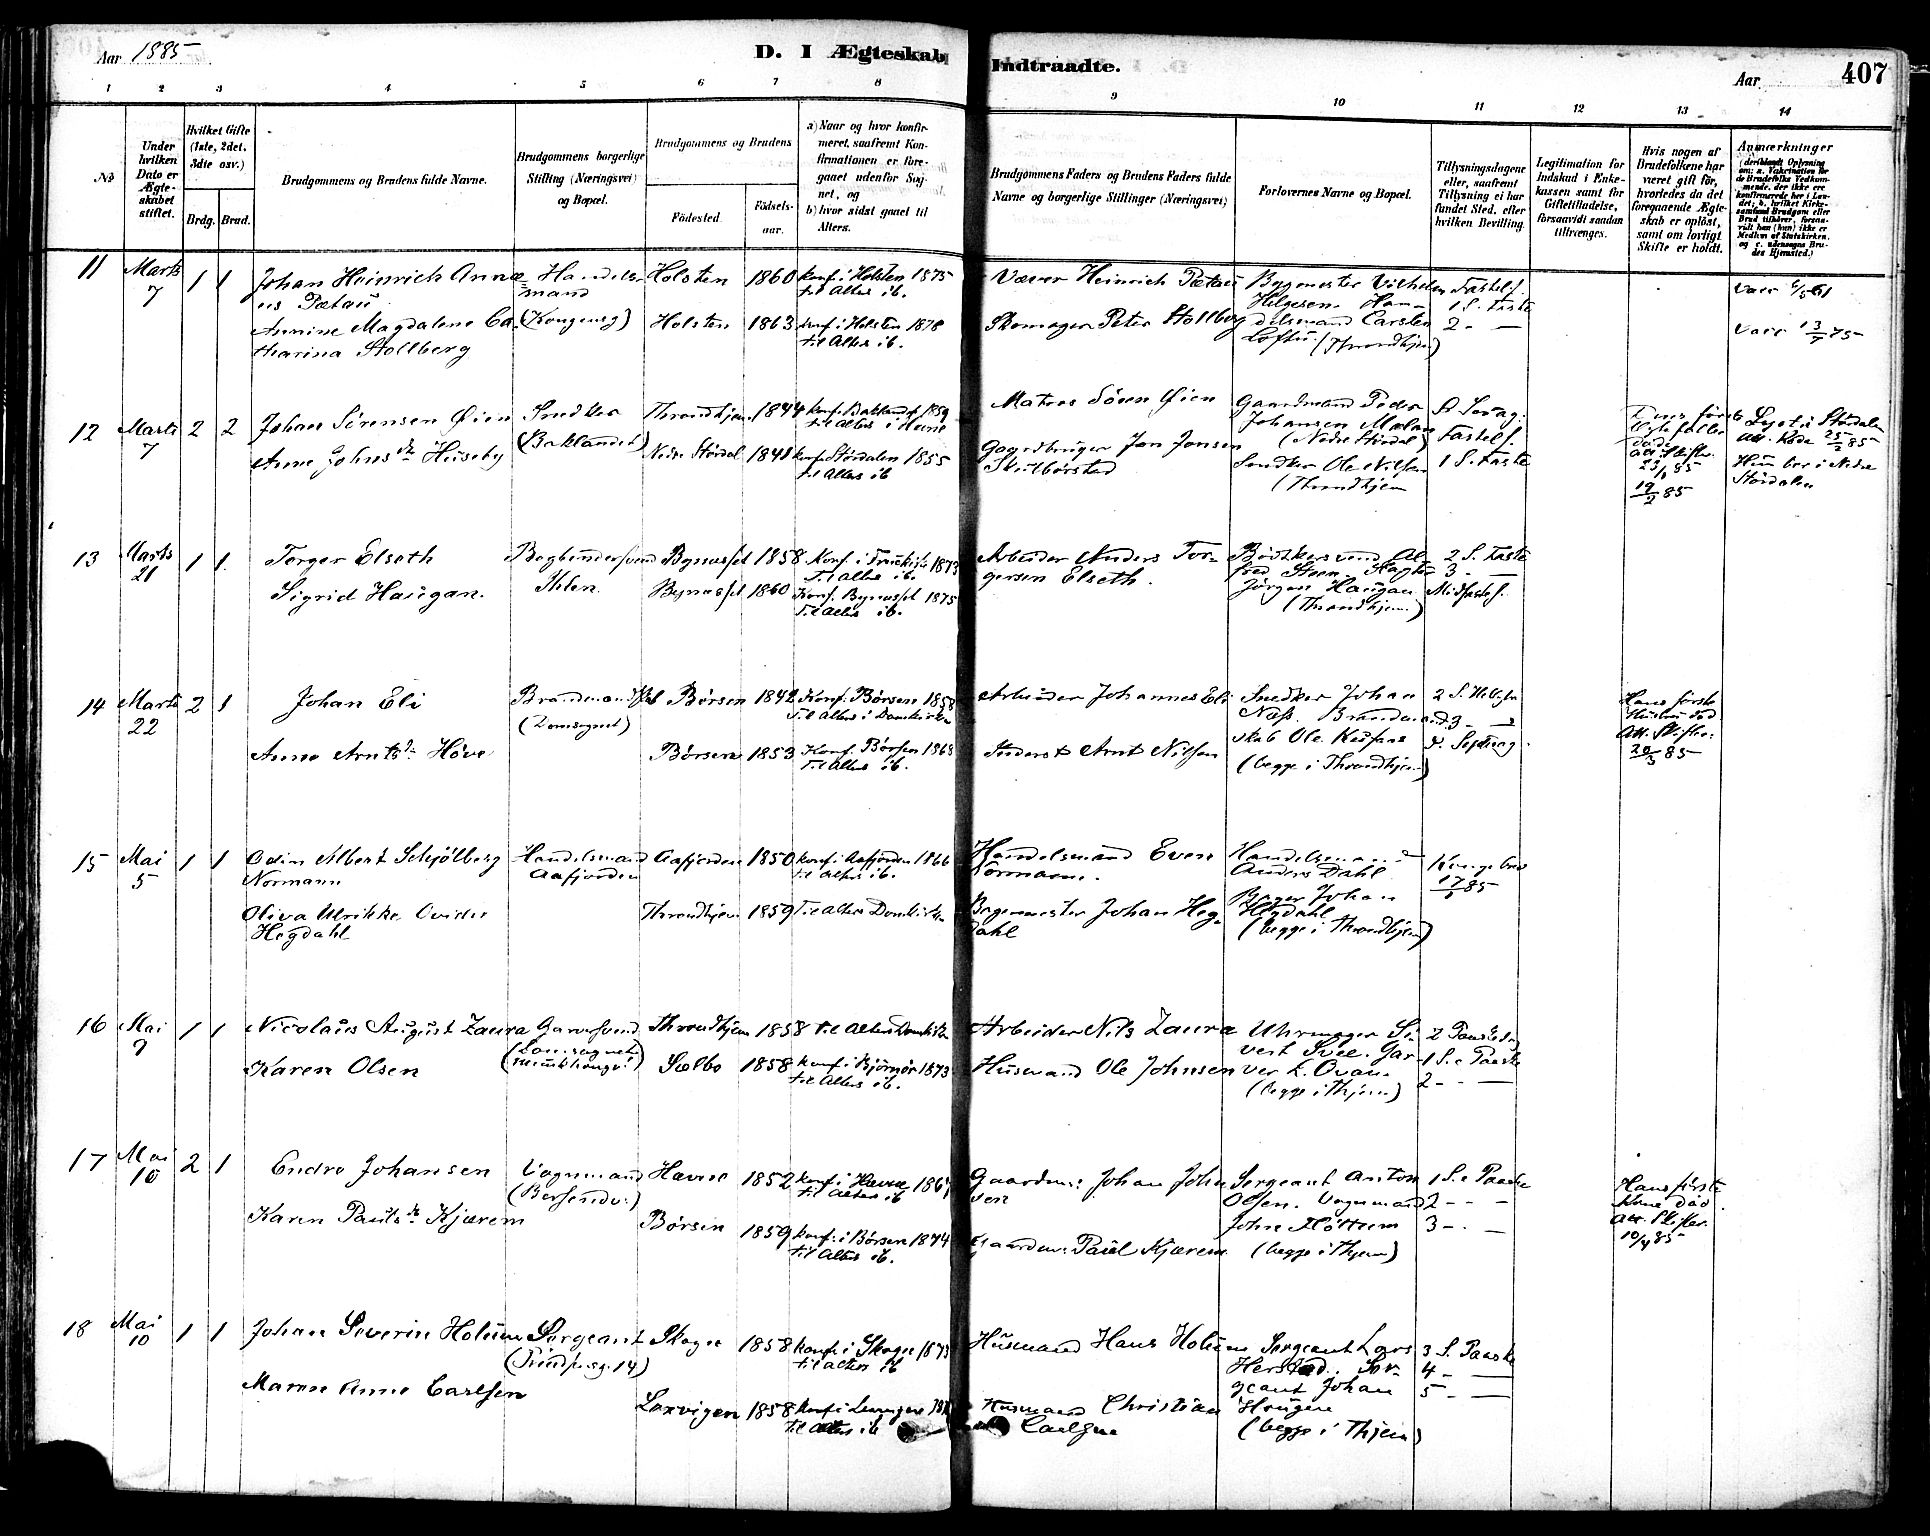 Aar 1885
D. I Ægteskab Indtraadte.
Aar
407
1 2 3 4 5 6 7 8 9 10 11 12 13 14
No
Under hvilken Dato er Ægteskabet stiftet.
Hvilket Gifte (1ste, 2det, 3die osv.)
Brdg. Brud.
Brudgommens og Brudens fulde Navne.
Brudgommens borgerlige Stilling (Næringsvei) og Bopæl.
Brudgommens og Brudens
Födested.
Födselsaar.
a) Naar og hvor konfirmeret, saafremt Konfirmationen er foregaaet udenfor Sognet, og
b) hvor sidst gaaet til Alters.
Brudgommens Faders og Brudens Faders fulde Navne og borgerlige Stillinger (Næringsvei)
Forlovernes Navne og Bopæl.
Tillysningsdagene eller, saafremt Tillysning ei har fundet Sted, efter hvilken Bevilling.
Legitimation for Indskud i Enkekassen samt for Giftetilladelse, forsaavidt saadan tiltrænges.
Hvis nogen af Brudefolkene har været gift för, hvorledes da det foregaaende Ægteskab er oplöst, samt om lovligt Skifte er holdt.
Anmærkninger
11
Marts
7
1 1
Johan Heinrich Annæ
us Pætau
Annine Magdalene Ca
tharina Stollberg
Handels=
mand
(Kongensg)
Holsten 1860
Holsten 1863
konf. i Holsten 1875
til Alters ib.
konf. i Holsten 1878
til Alters ib.
Væver Heinrich Pætau
Skomager Peter Stollberg
Bygmester Vilhelm
Helgesen. Han-
delsmand Carsten
(Throndhjem)
Fastel s.
1 S. Faste
2 - —
vacc 6/5 61
vacc 13/7 75
12
Marts
7
2 2
Johan Sörensen Øien
Anne Johnsdr Huseby
Snedker
(Baklandet)
Throndhjem 1844
Nedre Stördal 1841
konf. Baklandet 1859
til Alters i Hevne
konf. Stördalen 1855
til Alters ib
Matros Sören Øien
Gaardbruger Jon Jonsen
Gaardmand Peder
Johansen
(Nedre Stördal)
Snedker Ole Nilsen
(Throndhjem
Fastel s.
1 S. Faste
19/2 85
Lyst i Stördalen
att. 25/2 85
Hun bor i Nedre
Stördalen
13
Marts
21
1 1.
Torger Elseth
Sigrid Haugan.
Bogbindersvend
Ihlen
Bynesset 1858
Bynesset 1860
Konf. i Fruekirke 1873
Til Alters ib.
Konf. Bynesset 1875
Til Alters ib.
Arbeider Anders Tor-
gersen Elseth.
Bödkersvend Al
fred Steen.
Jörgen Haugan
(Throndhjem)
2 S. Faste
3 - —
Midfaste s.
14
Marts
22
2 1
Johan Eli
Anne Arntsdr Höve
(Domsognet)
Börsen 1842
Börsen 1853
Konf. Börsen 1858
Til Alters i Domkirken
Konf. Börsen 1868
Til Alters ib.
Arbeider Johannes Eli
Inderst Arnt Nilsen
Snedker Johan
Næss. Brandmand-
skab Ole
(begge i Throndhjem)
3 - —
Hans förste
Hustru död
Att. Skifter.
20/3 85
15
Mai
5
1 1
Odin Albert Schjölberg
Normann
Oliva Ulrikke Ovidia
Hegdahl
Handelsmand
Aafjorden
Aafjorden 1850
Throndhjem 1859
konf. i Aafjorden 1866
til Alters ib.
Til Alters Domkirken
Handelsmand Even
Normann.
Bagermester Johan Heg-
dahl
Handelsmand
Anders Dahl
Bager Johan
Hegdahl
(begge i Throndhjem)
Kongebrev
16
Mai
9
1 1
Nicolaus August Zaura
Karen Olsen
Garversvend
(Domsognet
Munkhaugv.)
Throndhjem 1858
Sælbo 1858
til Alters Domkirken
konf. i Bjørnør 1873
til Alters ib.
Arbeider Nils Zaura
Husmand Ole Johnsen
Uhrmager Si-
vert Svee. Gar-
ver
(begge i Thjem)
2 Paaskedag
1 S. e Paaske
2 - - —
17
Mai
10
2 1
Endre Johansen
Karen Paulsdr Kjærem
Vognmand
Hævne 1852
Börsen 1859
konf. i Hævne 1867
til Alters ib
konf. i Börsen 1874
til Alters ib.
Gaardm: Johan John
sen
Gaardm: Paul Kjærem
Sergeant Anton
Olsen. Vognmand
John
(begge i Thjem)
1 S. e Paaske
2 - - —
3 - - —
Hans förste
Kone död
att. Skifter.
10/4 85
18
Mai
10
1 1
Johan Severin Holum
Maren Anne Carlsen
Sergeant
Skoger 1858
Laxvigen 1858
konf. i Skoger 1873
til Alters ib
til Alters ib
Husmand Hans Holum
Husmand Christian
Carlsen
Sergeant Lars
Herstad. Ser-
geant Johan
Haugen
(begge i Thjem)
3 S. Paaske
4 - —
5 - —